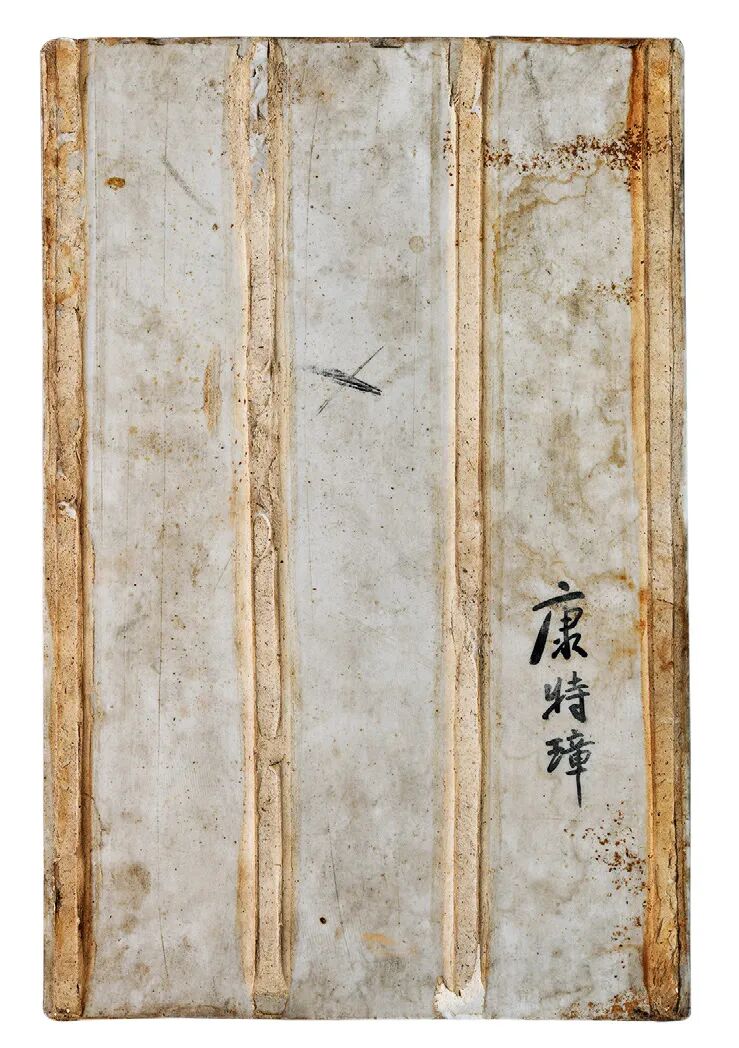 康特璋